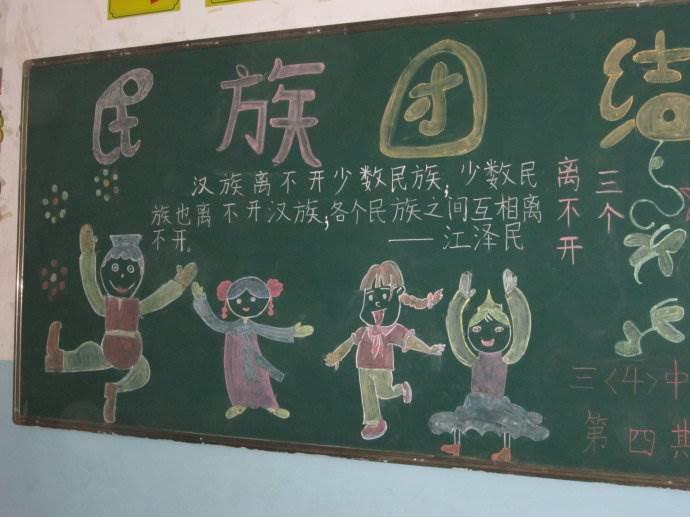 民族团结
汉族离不开少数民族，少数民
族也离不开汉族，各个民族之间互相离
不开．
——江泽民
三个
离不开
三〈4〉中
第四期